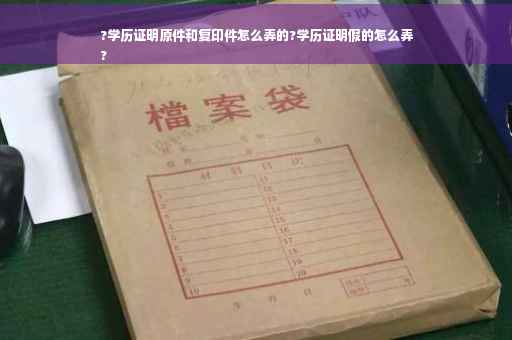 ?学历证明原件和复印件怎么弄的?学历证明假的怎么弄
?
檔案袋
材料目次
1 11
2 12
3 13
4 14
5 15
6 16
7 17
8 18
9 19
10 20
年 月 日